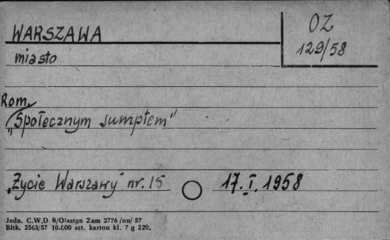 WARSZAWA
OZ
129/58
miasto
Rom.
"Społecznym sumptem"
"Życie Warszawy" nr. 15 17.I.1958
Jedn. C.W.D 8/Olsztyn Zam 2776/on/57
Błtk. 2563/57 10.000 szt. karton kl. 7 g 220.